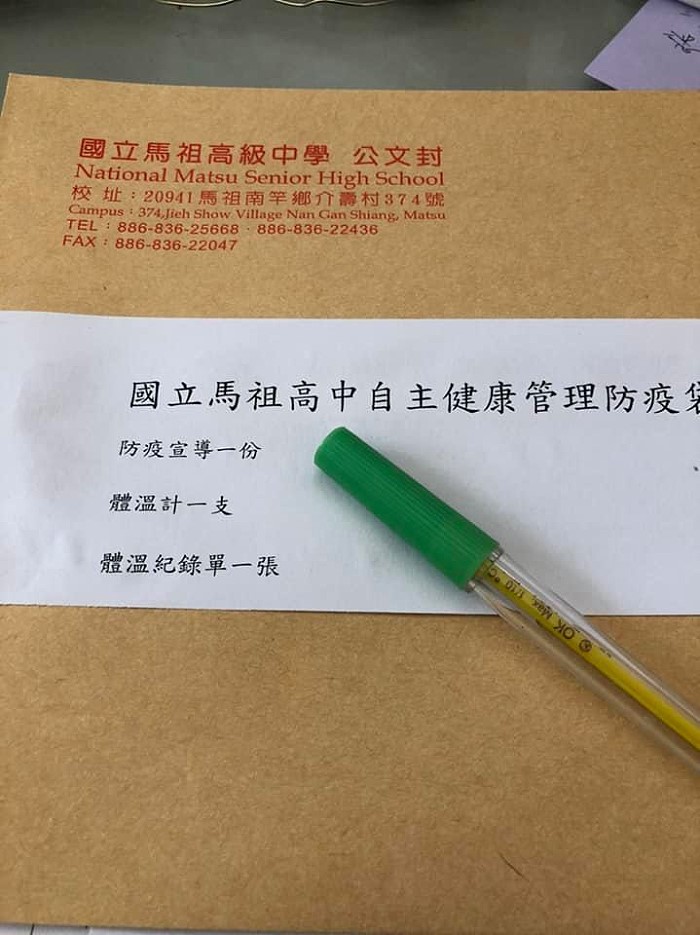 國立馬祖高級中學 公文封
National Matsu Senior High School
校址：20941馬祖南竿鄉介壽村374號
Campus：374,Jieh Show Village Nan Gan Shiang, Matsu
TEL：886-836-25668．886-836-22436
FAX：886-836-22047
國立馬祖高中自主健康管理防疫袋
防疫宣導一份
體溫計一支
體溫紀錄單一張
OK Max. 1/10 °C